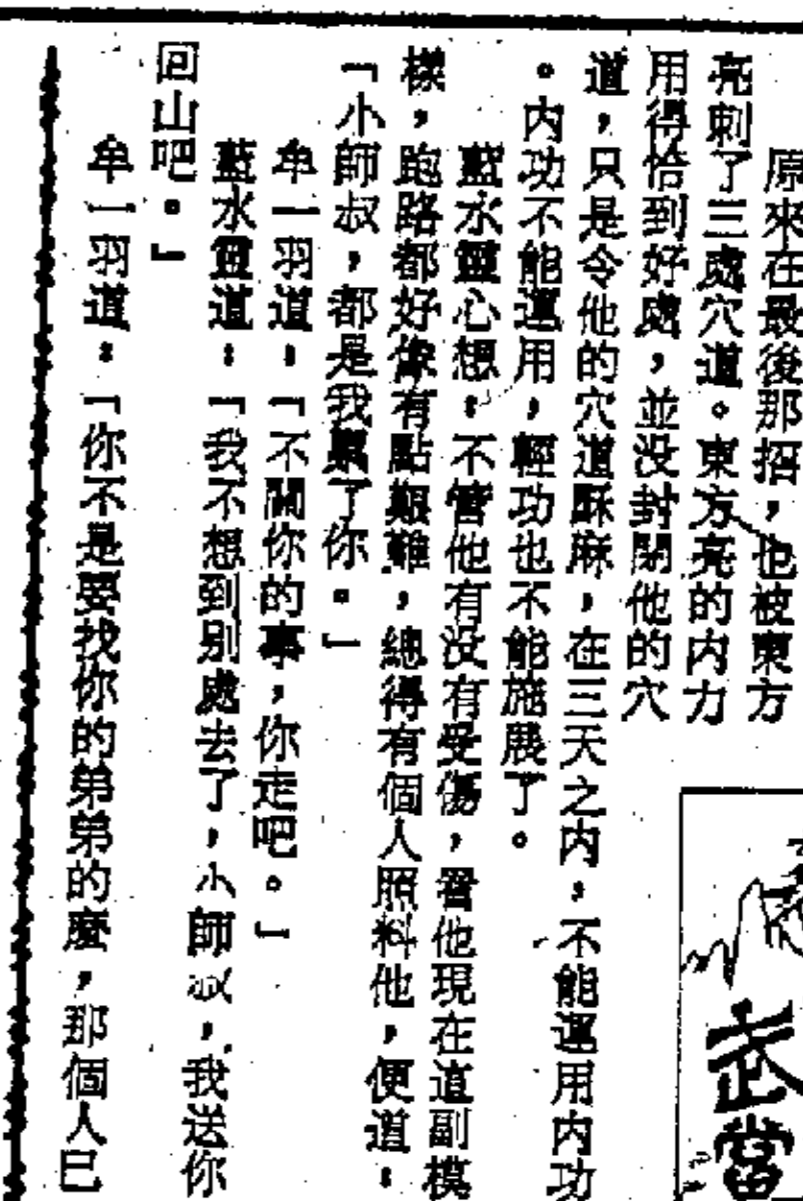 原來在最後那招，也被東方
亮刺了三處穴道。東方亮的內力
用得恰到好處，並沒封閉他的穴
道，只是令他的穴道酥麻，在三天之內，不能運用內功
。內功不能運用，輕功也不能施展了。
藍水靈心想：不管他有沒有受傷，看他現在這副模
樣，跑路都好像有點艱難，總得有個人照料他，便道：
「小師叔，都是我累了你。」
牟一羽道：「不關你的事，你走吧。」
藍水靈道：「我不想到別處去了，小師叔，我送你
回山吧。」
牟一羽道：「你不是要找你的弟弟的麼，那個人已
武當